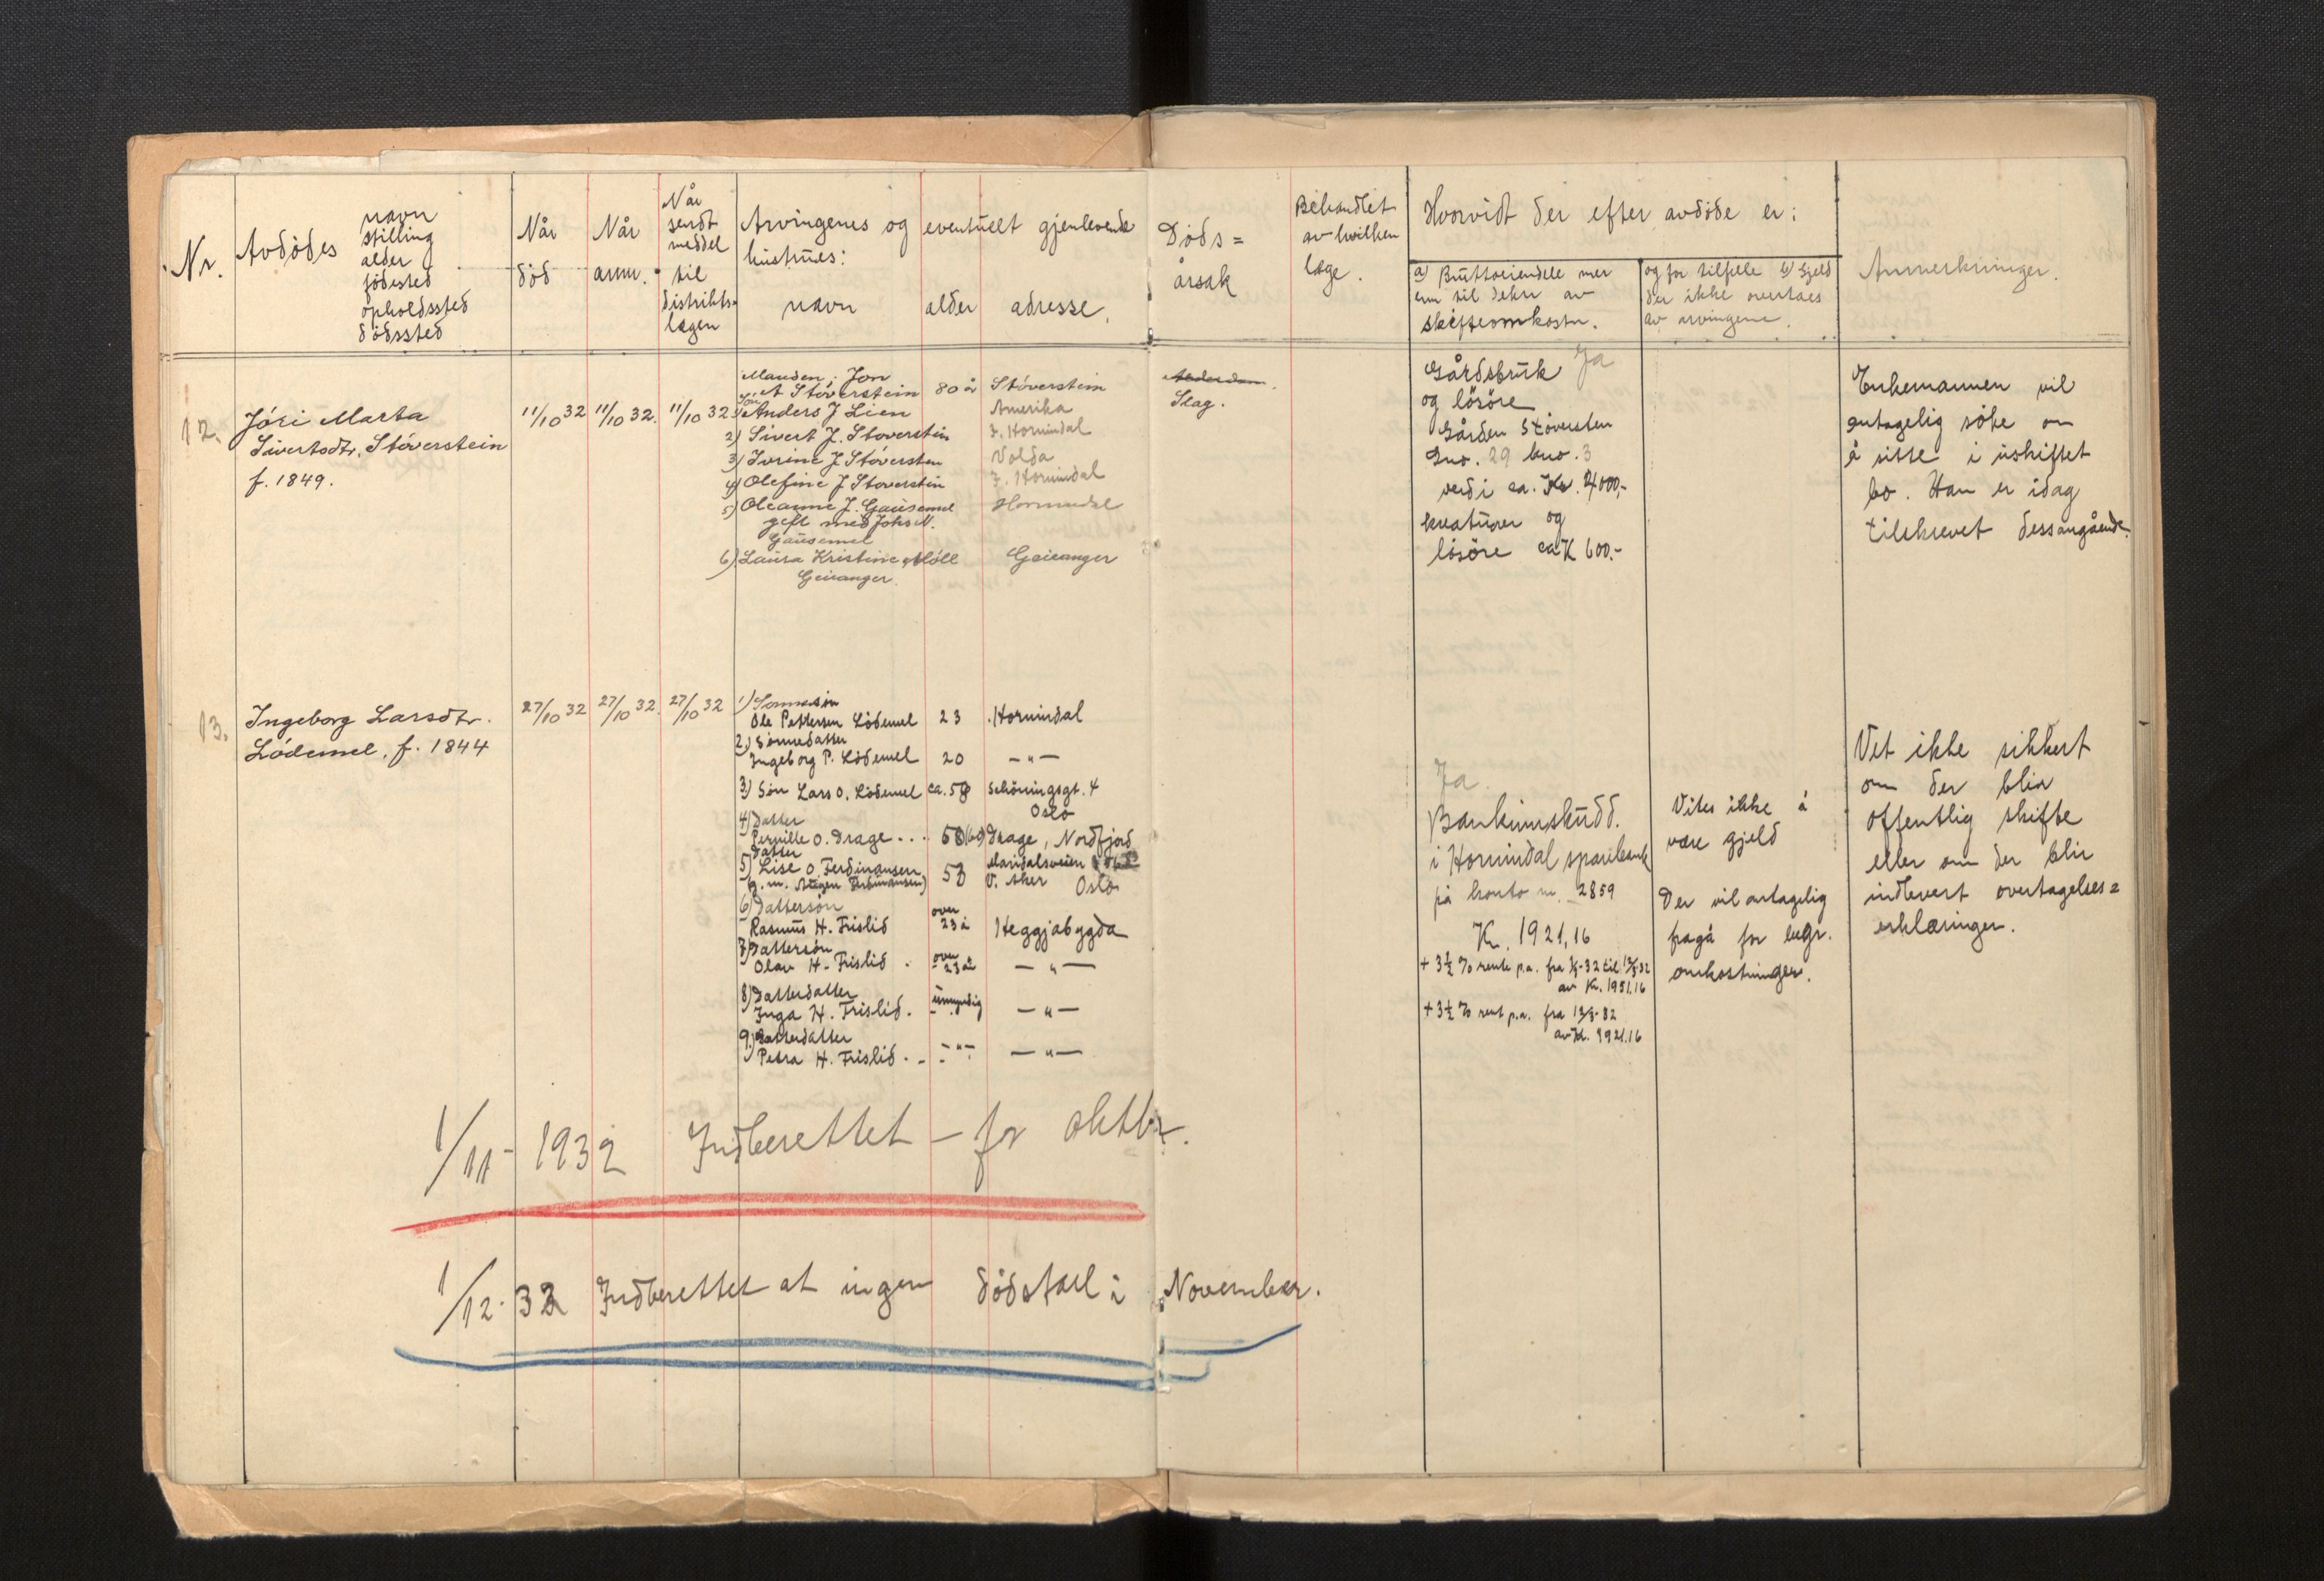 Nr.
Avdødes
navn
stilling
alder
fødested
opholdssted
dødssted
Når
død
Når
anm.
Når
sendt
meddel
til
distrikts-
lægen
Arvingenes og eventuelt gjenlevende
hustrues:
navn alder adresse.
Døds=
årsak
Behandlet
av hvilken
læge.
Hvorvidt der efter avdøde er:
a) Bruttoeiendele mer
enn til dekn av
skifteomkostn.
og for tilfelle b) Gjeld
der ikke overtaes
av arvingene.
Anmerkninger.
12.
Jóri Marta
Sivertsdtr. Stóverstein
f. 1849.
11/10 32 11/10 32. 11/10 32
Manden: Jon
A Stóverstein 80 år Stóverstein
Søn
1) Anders J Lien Amerika
2) Sivert J. Stoverstein J. Hornindal
3) Ivrine J Stóversten Volda
4) Olefine J Stoverstein J. Hornindal
5) Oleanne J. Gausemel Hornindal
gift med Johs N.
Gausemel
6) Laura Kristine Möll Geiranger
Geiranger.
Slag.
Gårdsbruk Ja
og lösöre
Gården Stóversten
Gno. 29 bno. 3
verdi ca. Kr. 4000,-
kreaturer og
lösöre ca K 600.-
Enkemannen vil
antagelig söke om
å sitte i uskiftet
bo. Han er idag
tilskrevet dessangående.
13.
Ingeborg Larsdtr.
Lódemel, f. 1844
27/10 32 27/10 32. 27/10 32
1) Sønnesøn
Ole Pettersen Lödemel 23 Hornindal
2.) Sønnedatter
Ingeborg P. Lödemel 20 — " —
3) Søn Lars O. Lödemel ca. 58 Schöningsgt. 4
Oslo
4) Datter
Pernille O. Drage . . . Drage, Nordfjord
Datter
5) Lise O. Ferdinansen Maridalsveien
V. Aker Oslo
6) Dattersøn
Rasmus H. Frislid over 23 å Heggjabygda
7) Dattersøn
Olav H. Frislid . over 23 år — " —
8) Datterdatter
Inga H. Frislid. umyndig — " —
9.) Datterdatter
Petra H. Frislid . - - " - — " —
Ja.
Bankinnskudd.
i Hornindal sparebank
på konto nr. 2859
Kr. 1921,16
+ 3½ % rente p.a. fra
av Kr. 1951.16
+ 3½ % rent p.a. fra
av Kr. 1921.16
Vites ikke å
være gjeld
Der vil antagelig
fragå for begr.
omkostninger.
Vet ikke sikkert
om der blir
offentlig skifte
eller om der blir
indlevert overtagelses=
erklæringer.
1/11- 1932 Indberettet - for oktbr.
1/12- 32 Indberettet at ingen dödsfall i November.